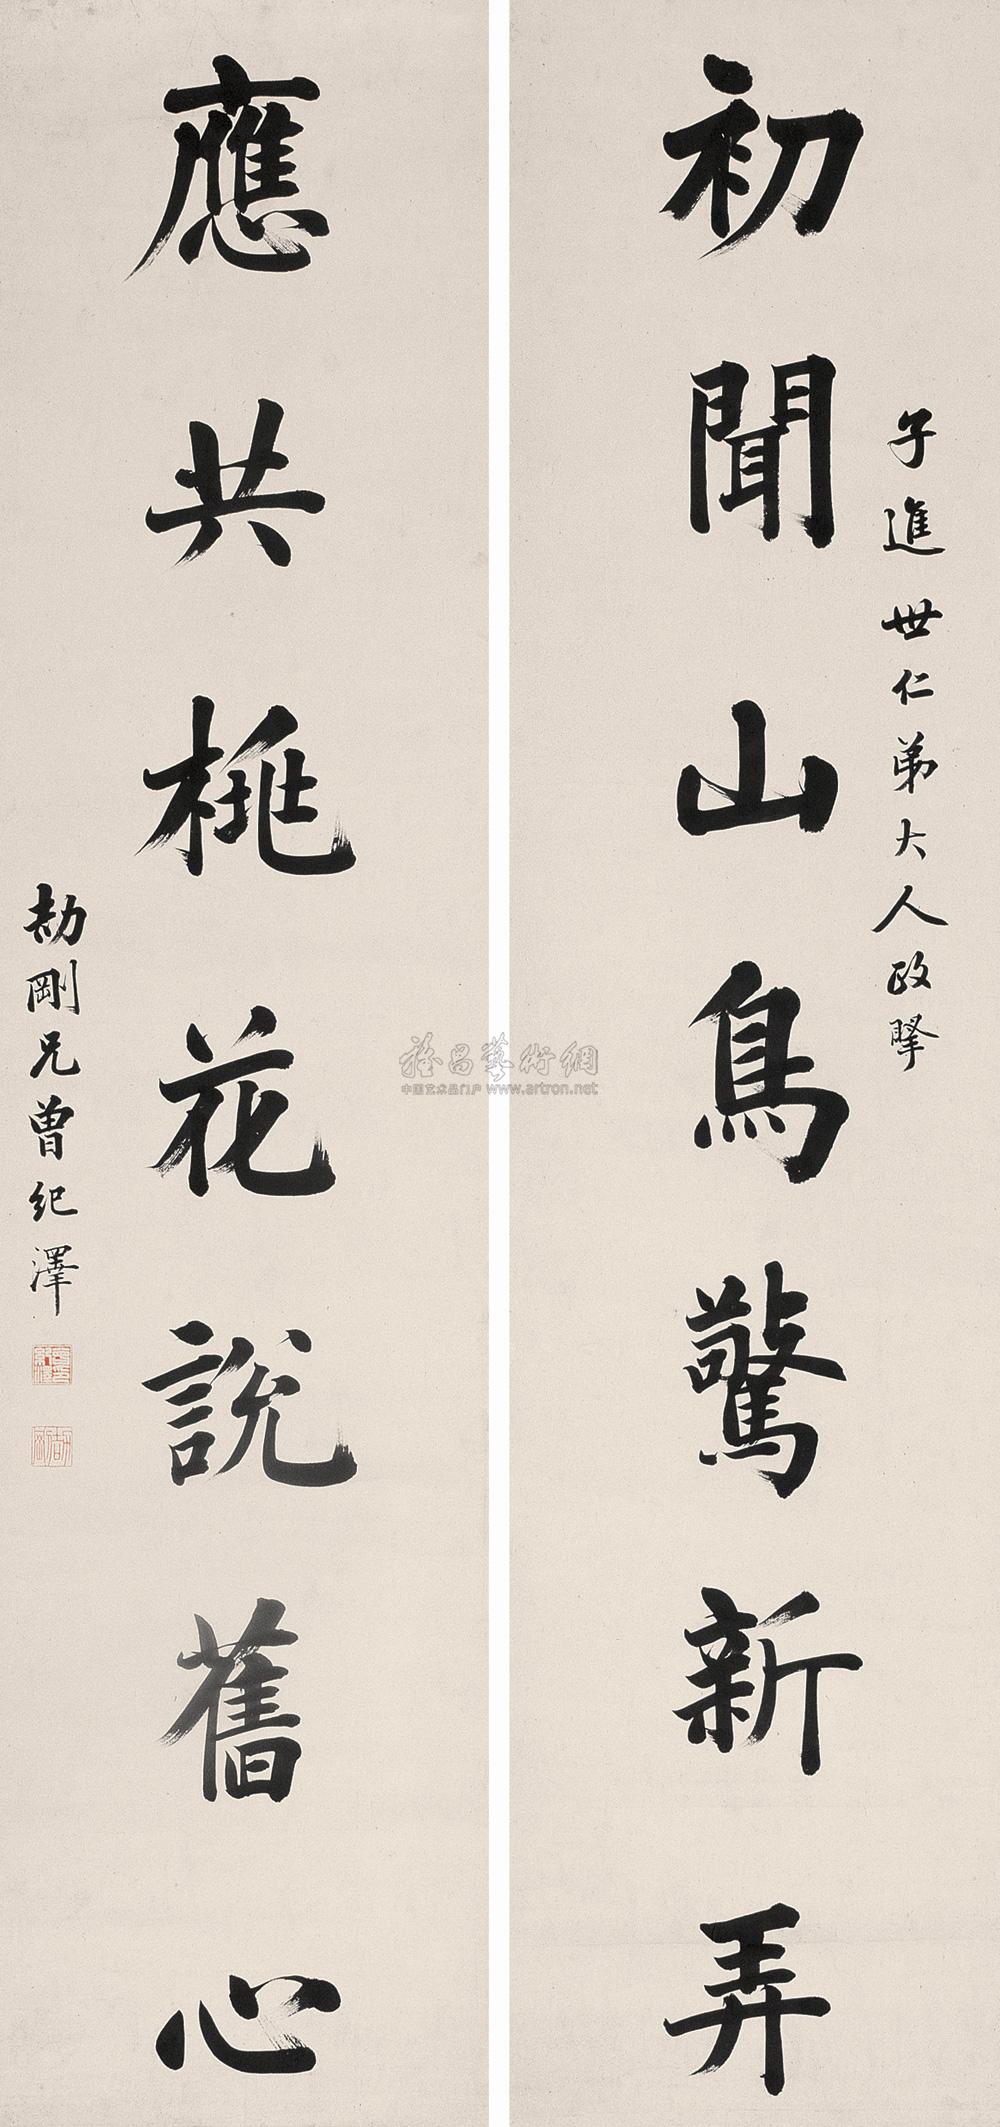 子進世仁弟大人政擊
初聞山鳥驚新弄
應共桃花說舊心
劼剛兄曾紀澤
雅昌藝術網
中国艺术品门户 www.artron.net